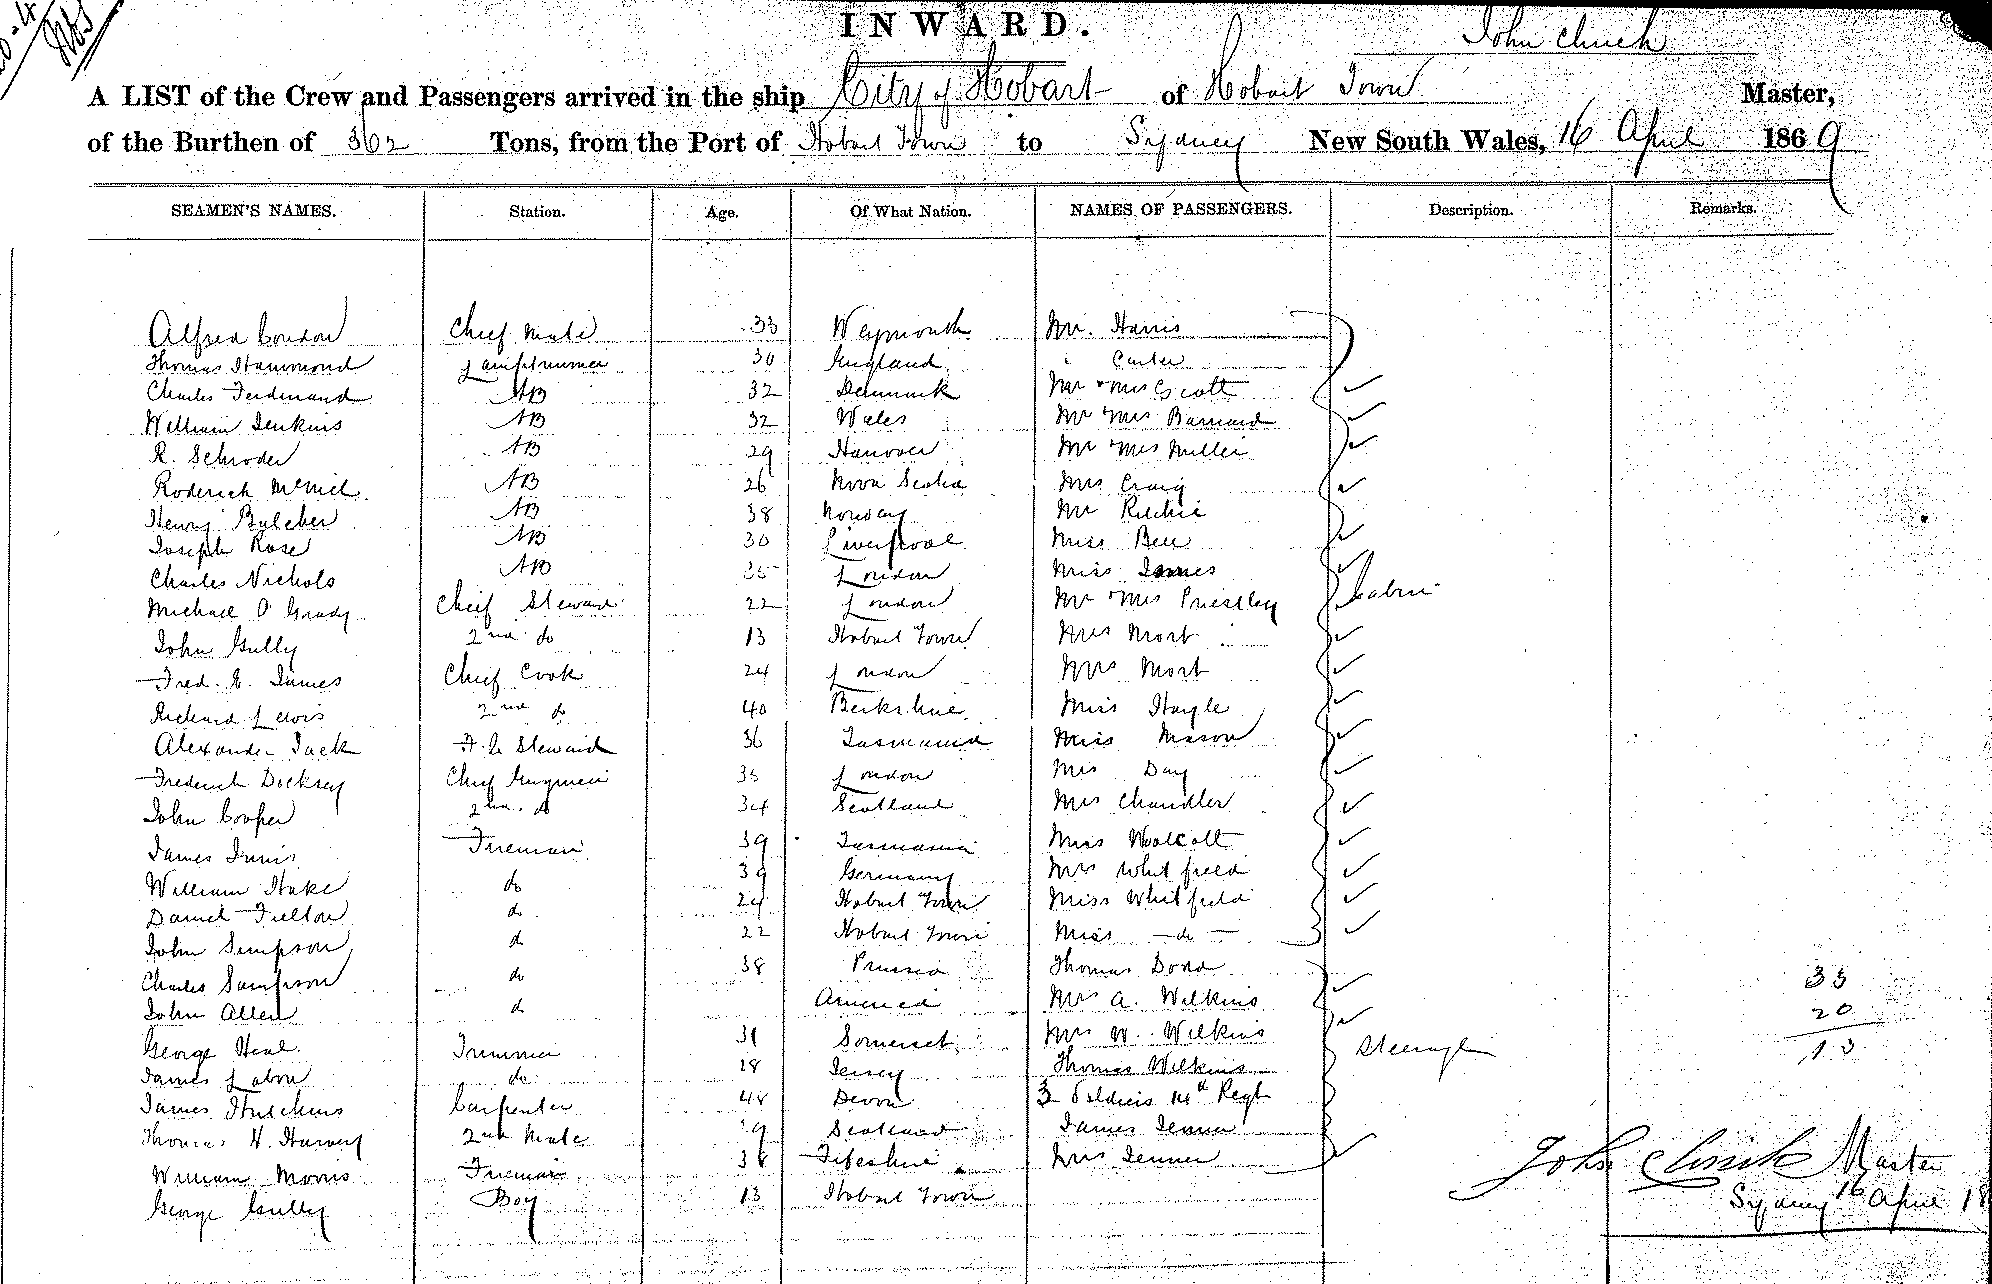 INWARD.
John Clinch
A LIST of the Crew and Passengers arrived in the ship City of Hobart of Hobart Town Master,
of the Burthen of 362 Tons, from the Port of Hobart Town to Sydney New South Wales, 16 April 1869
SEAMEN'S NAMES. Station. Age. Of What Nation. NAMES OF PASSENGERS. Description. Remarks.
Alfred Condon Chief Mate 33 Weymouth Mr. Harris
Thomas Hammond Lamptrimmer 30 England Carter
Charles Ferdinand AB 32 Denmark Mr & Mrs Scott
William Jenkins AB 32 Wales Mr & Mrs Barnard
R. Schroder AB 29 Hanover Mr & Mrs Miller
Roderick McNiel AB 26 Nova Scotia Mrs Craig
Henry AB 38 Norway Mr Ritchie
Joseph Rose AB 30 Liverpool Miss Bell
Charles Nichols AB London Miss James
Michael O'Grady Chief Steward 22 London Mr & Mrs Priestley Cabin
John Gully 2nd do 13 Hobart Town Mrs Mort
Fred. E. James Chief Cook 24 London Mrs Mort
Richard Lewis 2nd do 40 Berkshire Miss Hoyle
Alexander Jack F. C. Steward 36 Tasmania Miss Mason
Frederick Docksey Chief Engineer 35 London Mrs Day
John Cooper 2nd do 34 Scotland Mrs Chandler
James Innis Fireman 39 Tasmania Miss Woolcott
William Hake do 39 Germany Mrs Whitfield
Daniel Fulton do 24 Hobart Town Miss Whitfield
John Simpson do 22 Hobart Town Miss do
Charles Sampson do 38 Prussia Thomas Dodd 33
John Allen do America Mrs A. Wilkins 20
George Heal Trimmer 31 Somerset Mrs W. Wilkins Steerage 13
James Labon do 28 Jersey Thomas Wilkins
James Hutchins Carpenter 48 Devon 3 Soldiers 14th Regt
Thomas H. Harvey 2nd Mate 29 Scotland James Jenner
William Morris Fireman 36 Fifeshire Mrs Jenner John Clinch Master
George Gully Boy 13 Hobart Town Sydney 16 April 18